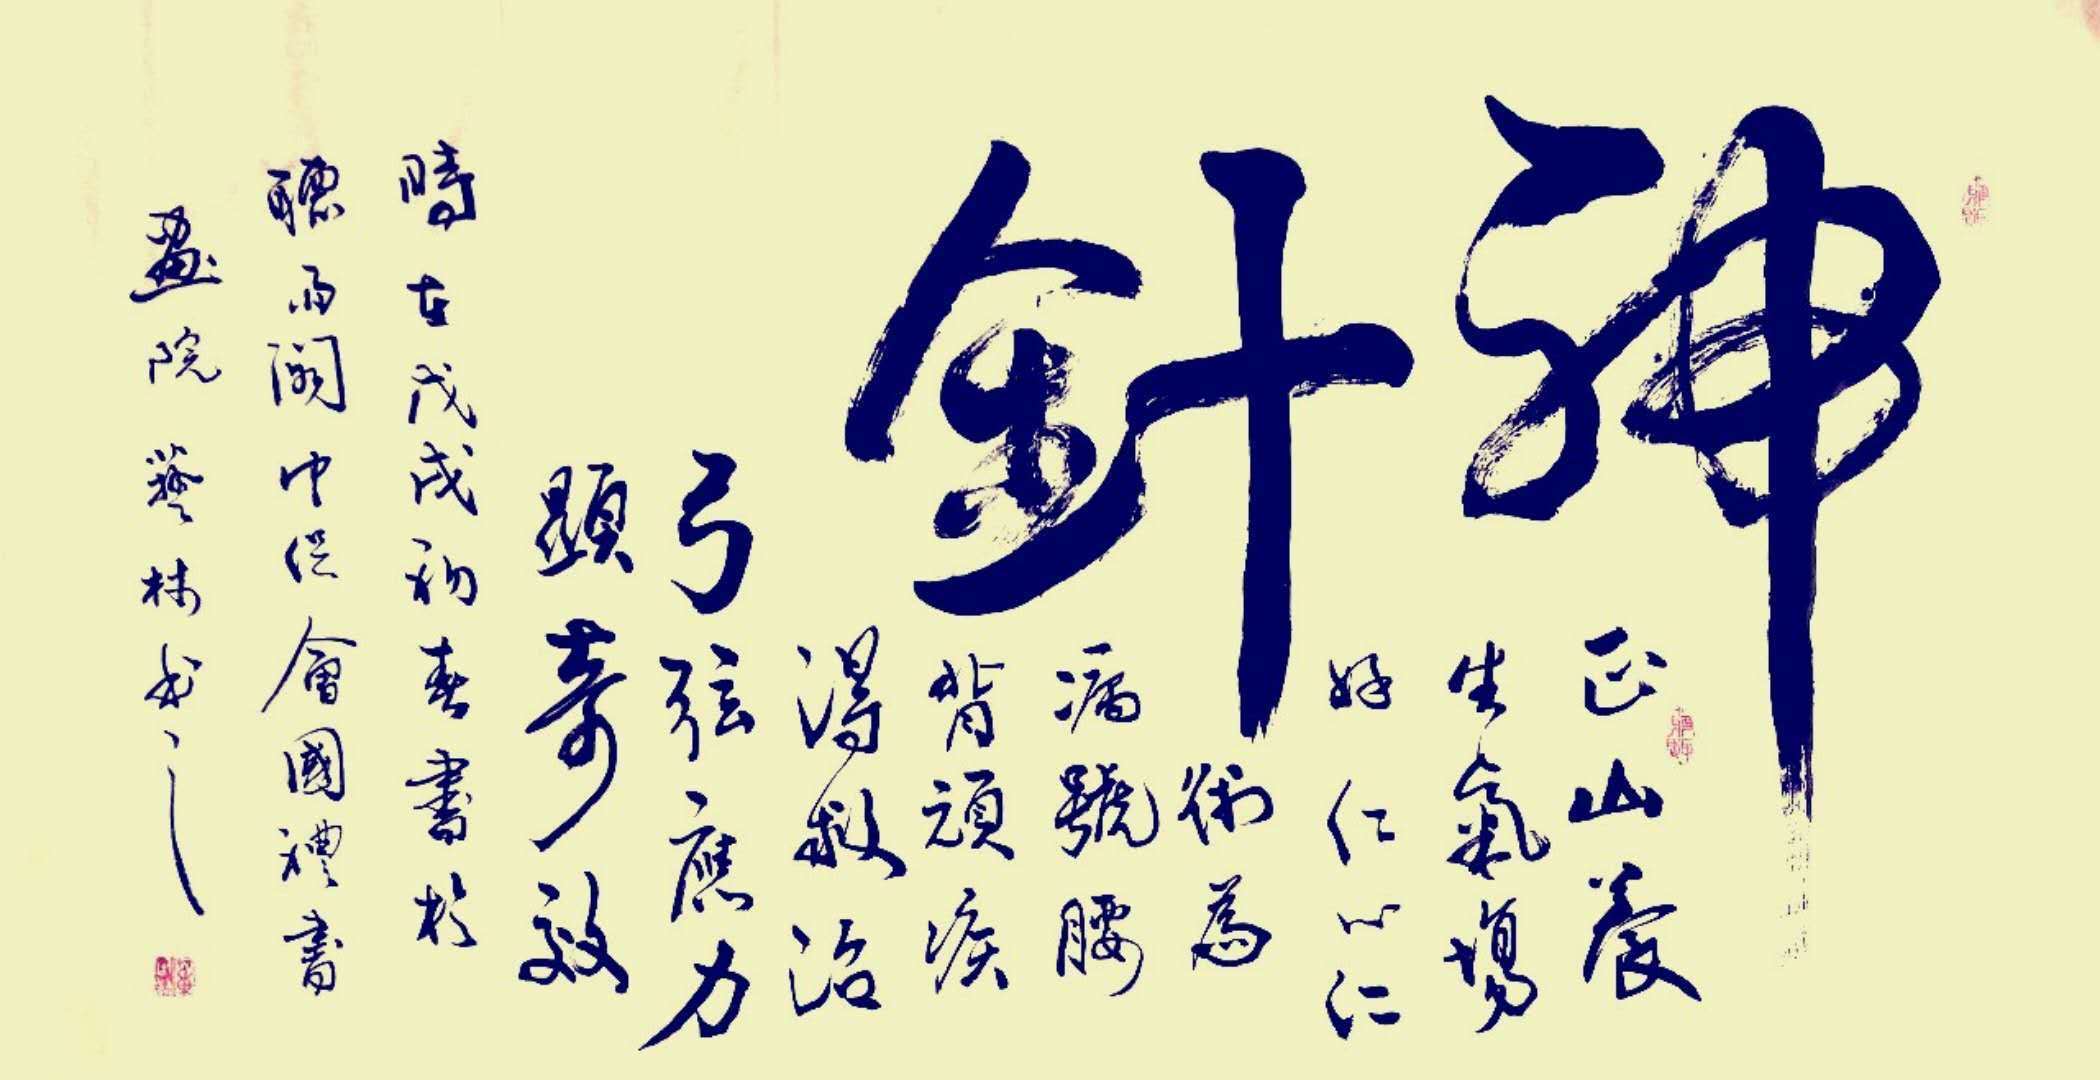 神針
正山養
生氣場
好仁心仁
術為
病號腰
背頑疾
得救治
弓弦應力
顯奇效
時在戊戌初春書於
聽雨閣中促會國禮書
畫院藝林書